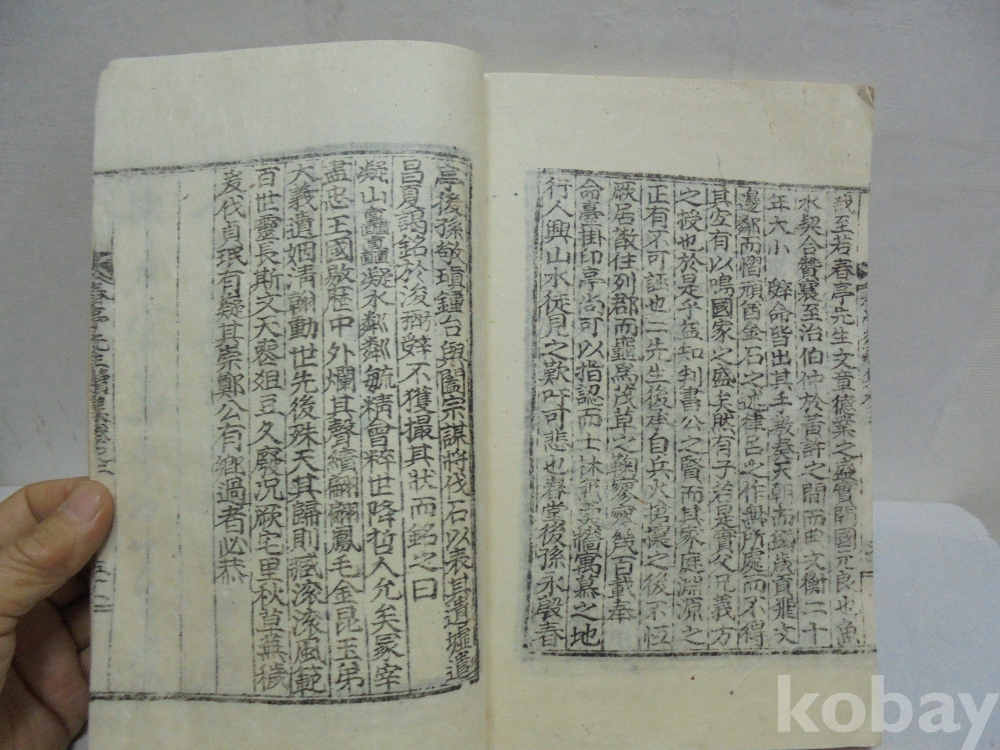 哉至若春亭先生文章德業之盛實開國元良也魚
水契合贊襄至治伯仲於黃許之間而典文衡二十
年大小辭命皆出其手敷奏天朝而蠲歲貢飛文
邊鄰而慴頑酋金石之述律呂之作無所處而不得
其宜有以鳴國家之盛矣然有子若是實父兄義方
之授也於是乎益知判書公之賢而其家庭淵源之
正有不可誣也二先生後承自兵火搶攘之後不恒
厥居散住列郡而遺爲茂草之鞠寥寥幾百載奉
命臺掛印亭尚可以指認而士林愁雲檣寓慕之地
行人興山水徒見之歎吁可悲也春堂後孫永磬春
亭後孫敬瑱鍾台與闔宗謀將伐石以表其遺墟遣
昌夏謁銘於浚弼辭不獲撮其狀而銘之曰
凝山矗矗凝水粼粼毓精會粹世降哲人允矣冢宰
盡忠王國敭歷中外爛其聲績翩翩鳳毛金昆玉弟
大義遺姻淸翰動世先後殊天其歸則 滚滚風範
百世靈長斯文天喪俎豆久廢況厥宅里秋草蕪穢
爰伐貞珉有嶷其崇鄭公有鄕過者必恭
春亭先生
kobay